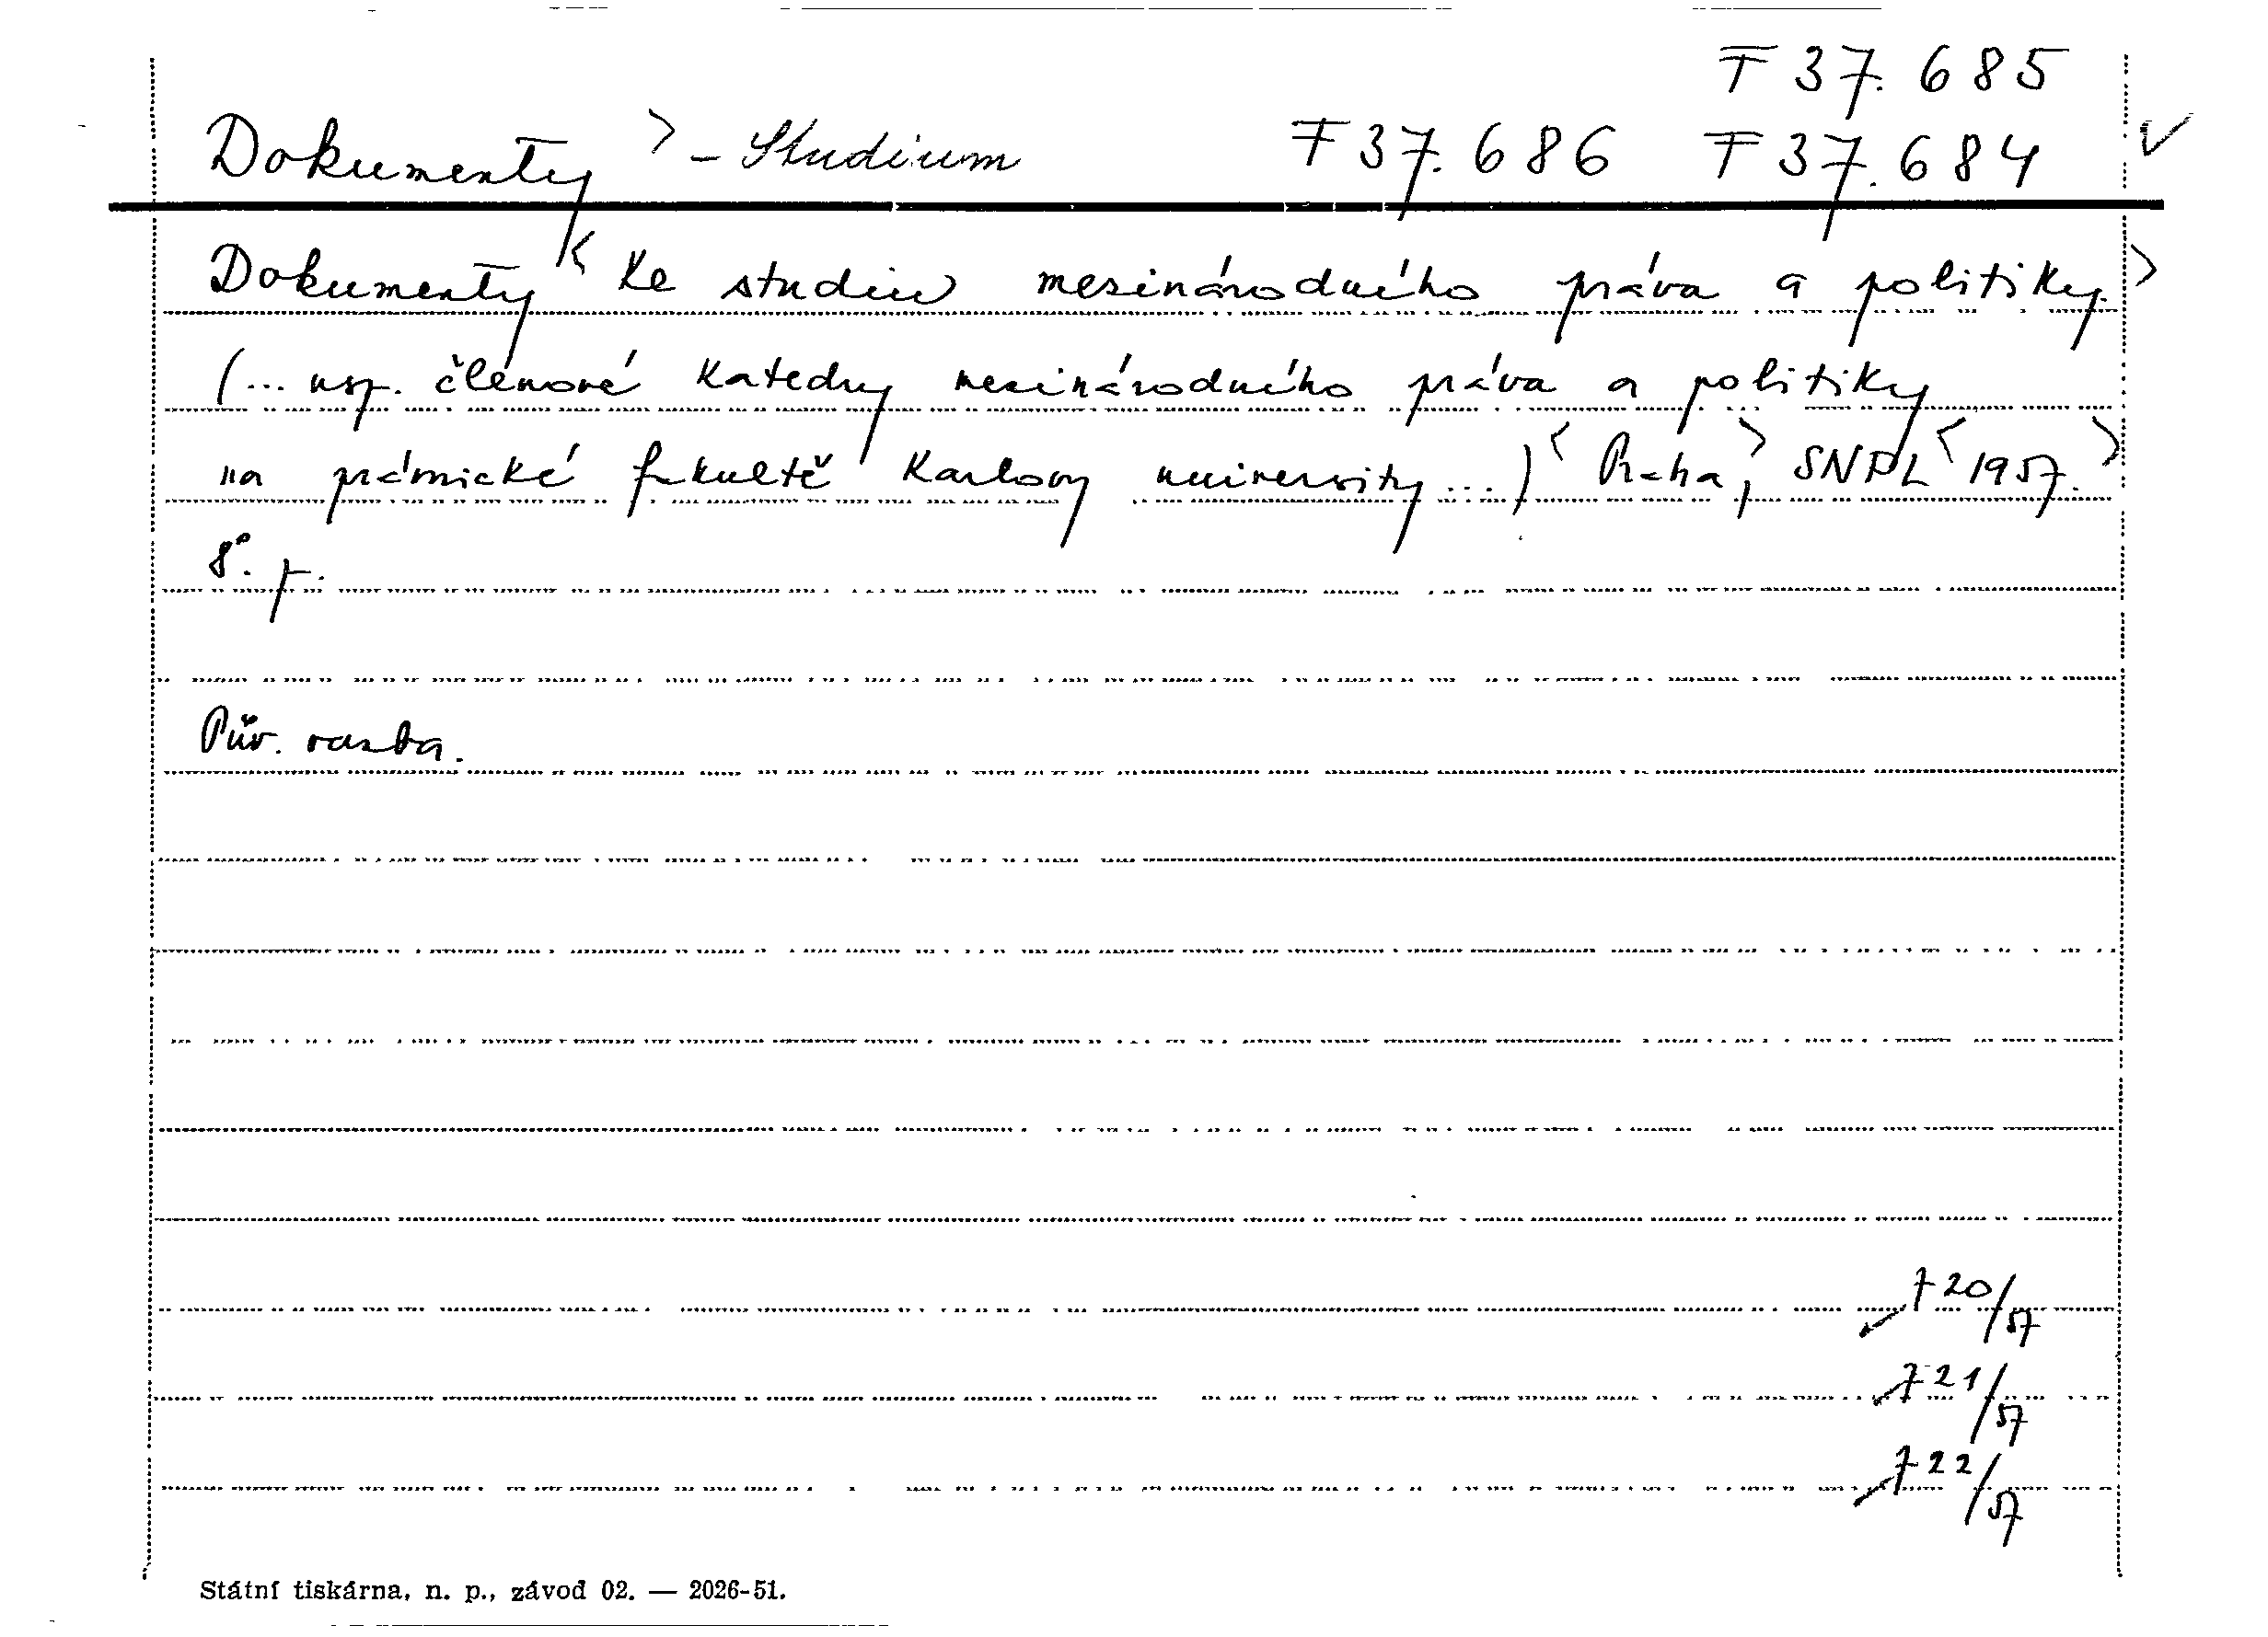 F 37.685
Dokumenty > - Studium F 37.686 F 37.684 ✓
Dokumenty < ke studiu mezinárodního práva a politiky. >
(... usp. členové katedry mezinárodního práva a politiky
na právnické fakultě Karlovy university ...) < Praha, > SNPL < 1957. >
8°.
Pův. vazba.
720/57
721/57
722/57
Státní tiskárna, n. p., závod 02. — 2026-51.